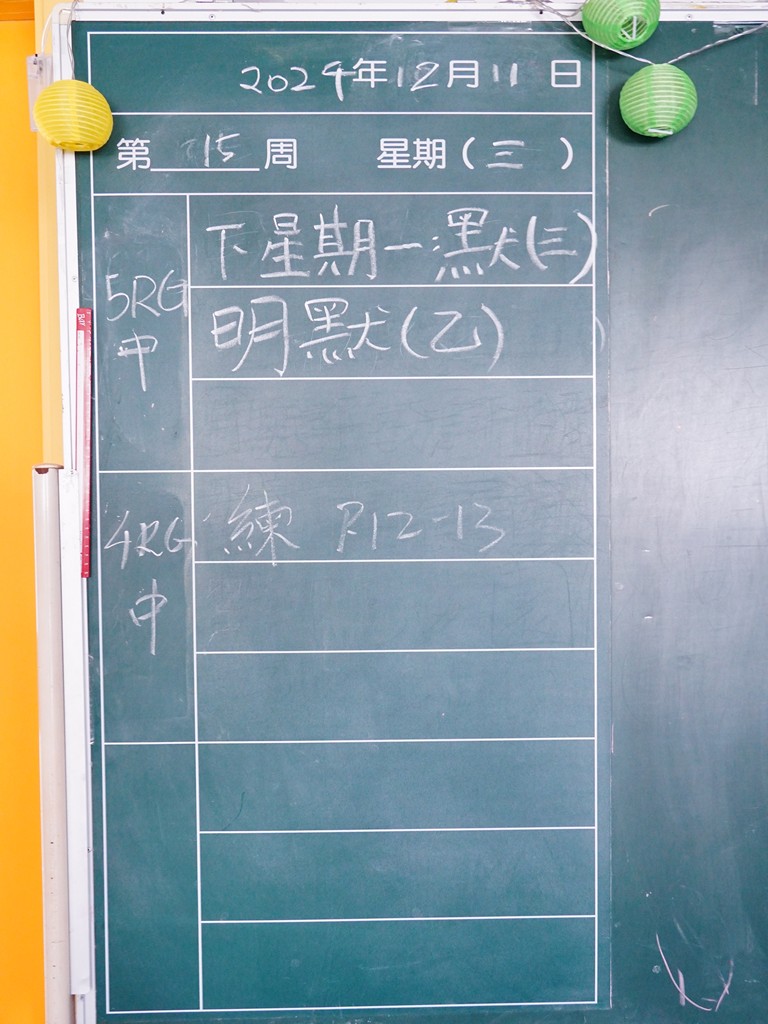 2024年12月11日
第 15 周 星期(三)
5RG
中
下星期一:默(三)
明默(乙)
4RG
中
練 P.12-13